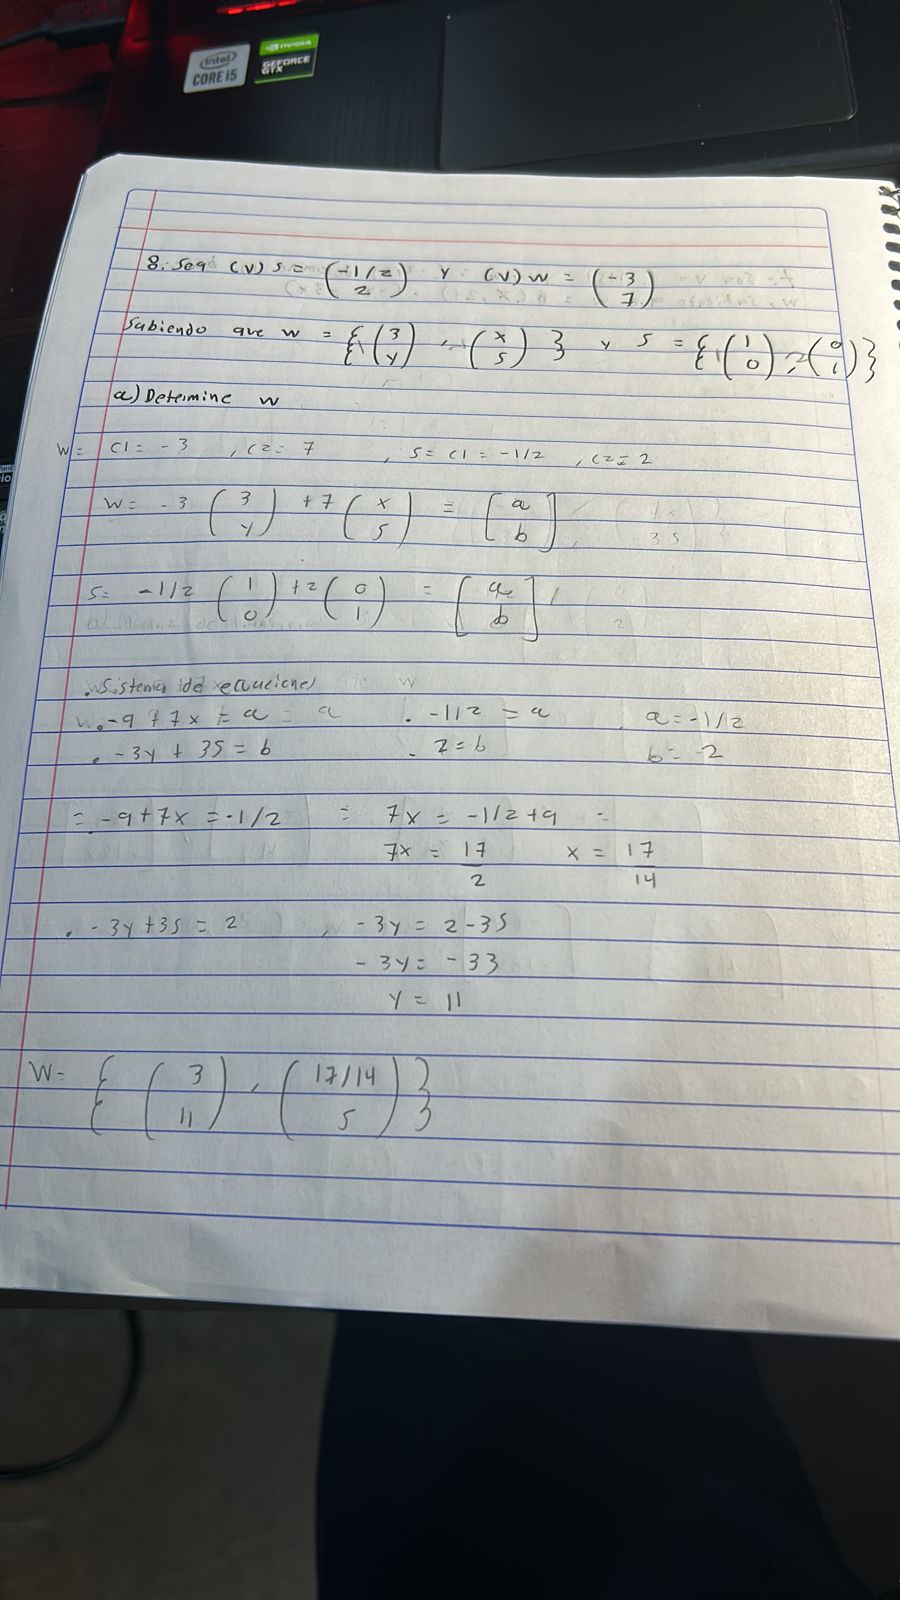 intel
CORE i5
NVIDIA
GEFORCE
GTX
8. Sea (V)s = (-1/2 2) y (V)w = (-3 7)
Sabiendo que w = {(3 y), (x 5)} y S = {(1 0), (0 1)}
a) Determine w
W= C1 = -3 , C2 = 7 , S= C1 = -1/2 , C2 = 2
W= -3 (3 y) +7 (x 5) = [a b]
S= -1/2 (1 0) +2 (0 1) = [a b]
Sistema de ecuaciones w
-9 + 7x = a = a . -1/2 = a a = -1/2
. -3y + 35 = b . 2 = b b = 2
= -9+7x = -1/2 = 7x = -1/2+9 =
7x = 17/2 x = 17/14
. -3y+35 = 2 , -3y = 2-35
-3y = -33
y = 11
W= {(3 11), (17/14 5)}